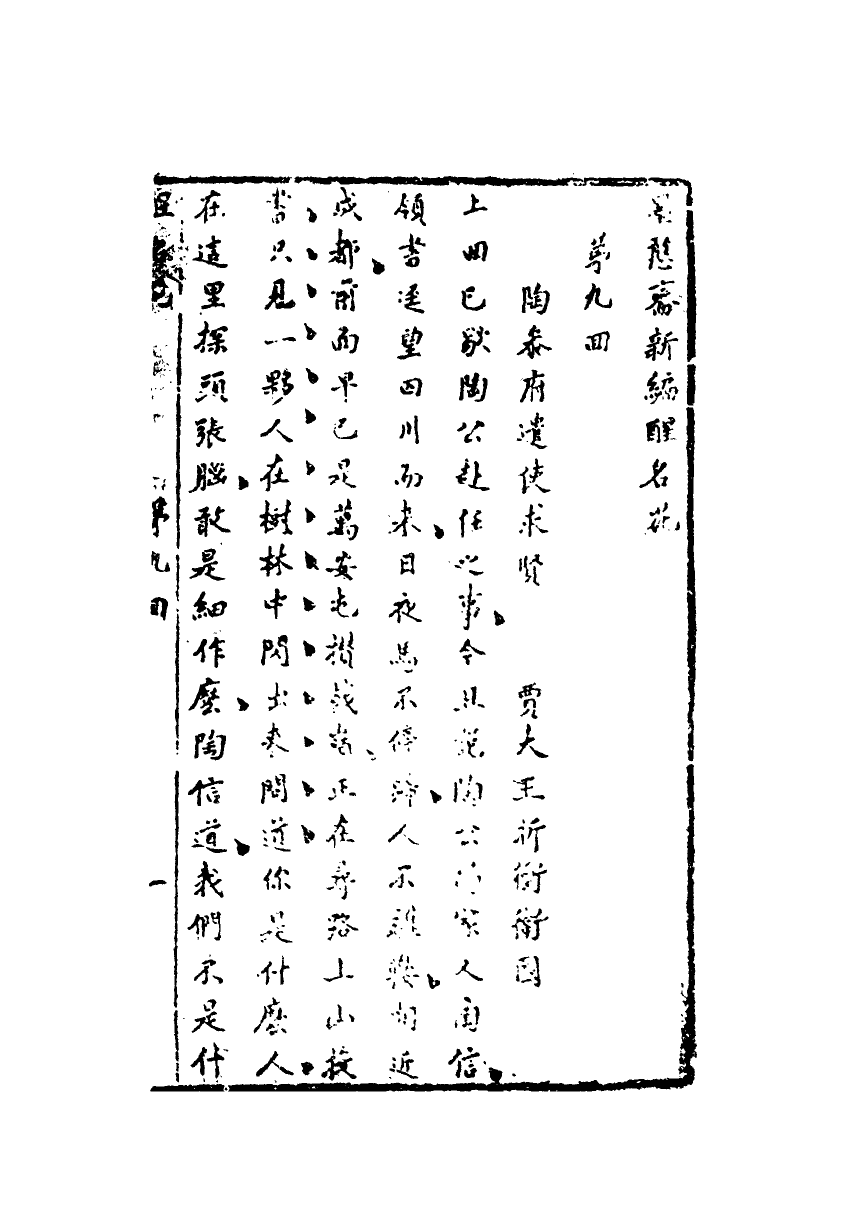 墨憨齋新編醒名花
第九回
陶叅府遣使求賢 賈大王折衝衛国
上回已敘陶公赴任之事今且說陶公的家人陶信
領書逕望四川而来日夜馬不停蹄人不離鞍初近
成都前面早已是萬安屯攅戟崗正在尋路上山投
書只見一夥人在樹林中閃出来問道你是什麼人
在這里探頭張腦敢是細作麼陶信道我們不是什
第九回
一